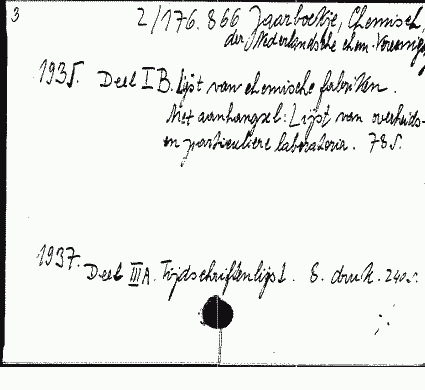 3 2/176.866 Jaarboekje, Chemisch,
der Nederlandsche chem. Vereenig
1935. Deel I B. Lijst van chemische fabrieken.
Met aanhangsel: Lijst van overheids-
en particuliere laboratoria. 78 s.
1937. Deel III A. Tijdschriftenlijst. 8. druk. 240 s.